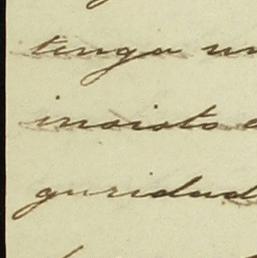 tenga un
insisto
guridad